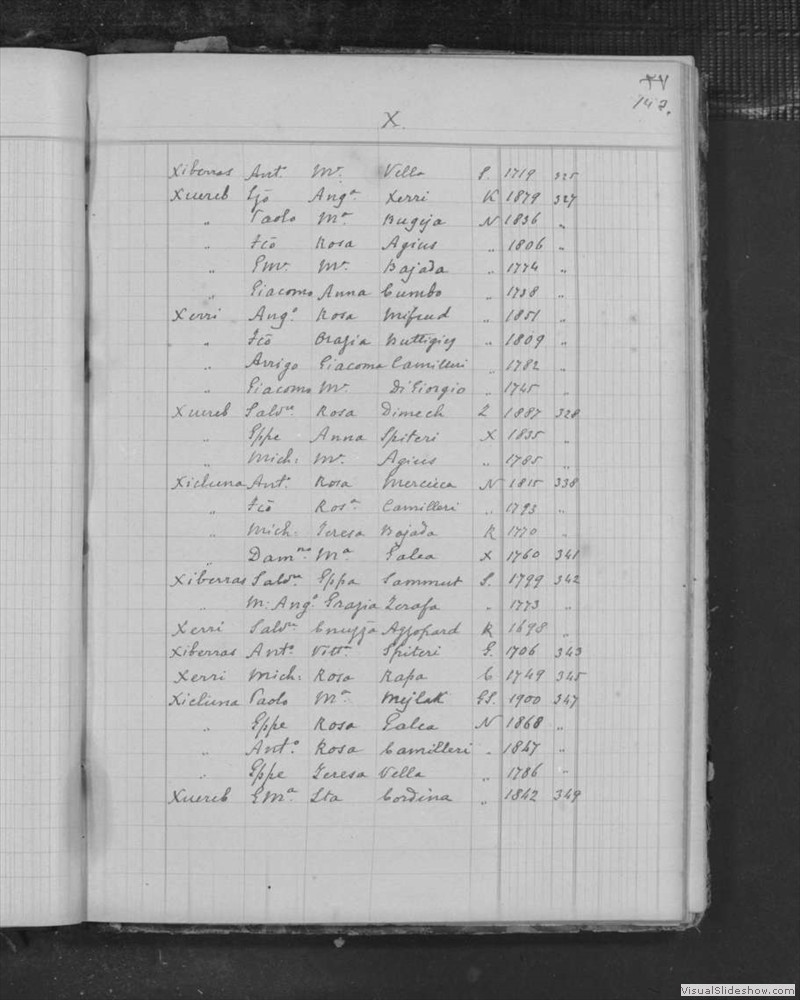 XV
142.
X.
Xiberras Ant. Mª Vella S. 1719 325
Xuereb Gjō Angª Xerri K 1879 327
„ Paolo Mª Bugeja N 1836 „
„ Fcō Rosa Agius „ 1806 „
„ Emº. Mª Bajada „ 1774 „
„ Giacomo Anna Cumbo „ 1738 „
Xerri Angº Rosa Mifsud „ 1851 „
„ Fcō Orazia Buttigieg „ 1809 „
„ Arrigo Giacoma Camilleri „ 1782 „
„ Giacomo Mª DiGiorgio „ 1745 „
Xuereb Salvre Rosa Dimech Z 1887 328
„ Gppe Anna Spiteri X 1835 „
„ Mich: Mª Agius „ 1785 „
Xicluna Antº Rosa Mercieca N 1815 338
„ Fcō Rosª Camilleri „ 1793 „
„ Mich: Teresa Bajada K 1770 „
„ Damno Mª Galea X 1760 341
Xiberras Salvre Gppa Sammut S. 1799 342
„ M: Angº Grazia Zerafa „ 1773 „
Xerri Salvre Azzopard K 1698 „
Xiberras Antº Vittª Spiteri G. 1706 343
Xerri Mich: Rosa Rapa C 1749 345
Xicluna Paolo Mª Mejlak GS. 1900 347
„ Gppe Rosa Galea N 1868 „
„ Antº Rosa Camilleri „ 1847 „
„ Gppe Teresa Vella „ 1786 „
Xuereb G Mª Sta Cordina „ 1842 349
VisualSlideshow.com